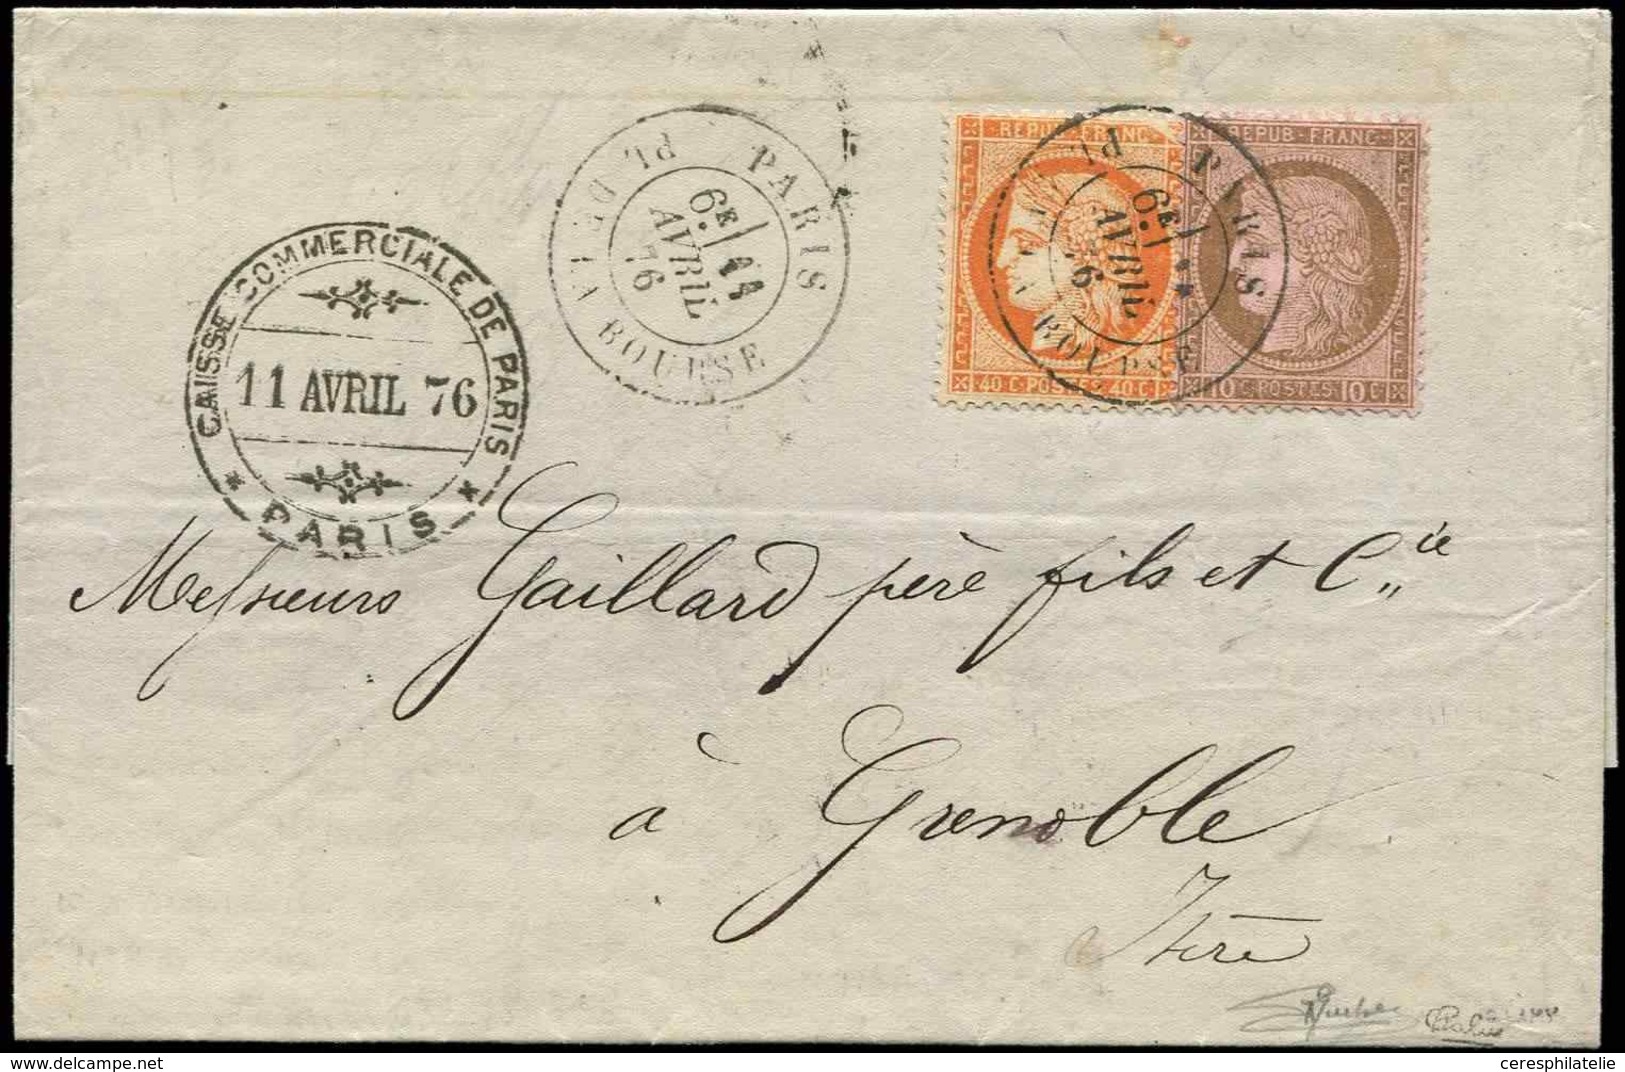 CAISSE COMMERCIALE DE PARIS
11 AVRIL 76
* PARIS *
PARIS
PL. DE LA BOURSE
6E 11
AVRIL
76
REPUB FRANC
40 C POSTES 40 C
REPUB FRANC
10 C POSTES 10 C
PARIS
PL. DE LA BOURSE
6E
AVRIL
76
Messieurs Gaillard père fils et Cie
à Grenoble
Isère
ceresphilatelie